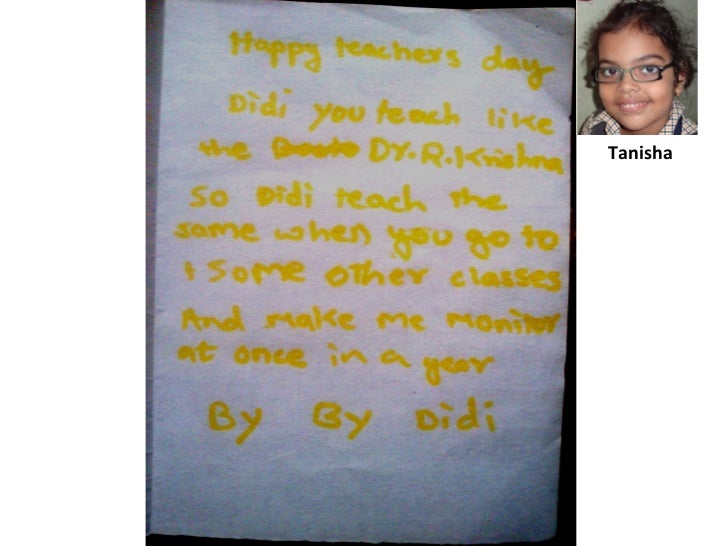 Happy teachers day
Didi you teach like
the Dr.R.Krishna
So Didi teach the
same when you go to
some other classes
And make me monitor
at once in a year
By By Didi
Tanisha